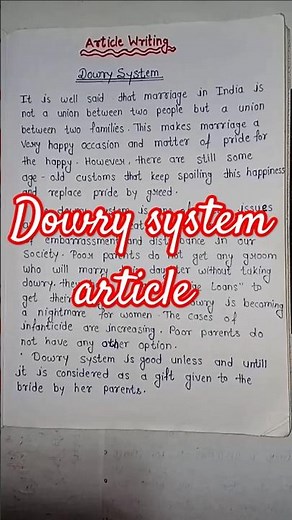 Article Writing
Dowry System
It is well said that marriage in India is
not a union between two people but a union
between two families. This makes marriage a
very happy occasion and matter of pride for
the happy. However, there are still some
age-old customs that keep spoiling this happiness
and replace pride by greed.
dowry system is issues
Dowry system
of embarrassment and disturbance in our
Society. Poor parents do not get any groom
who will marry daughter without taking
article
dowry. they Loans" to
get their dowry is becoming
a nightmare for women. The cases of
infanticide are increasing. Poor parents do
not have any other option.
Dowry system is good unless and untill
it is considered as a gift given to the
bride by her parents.